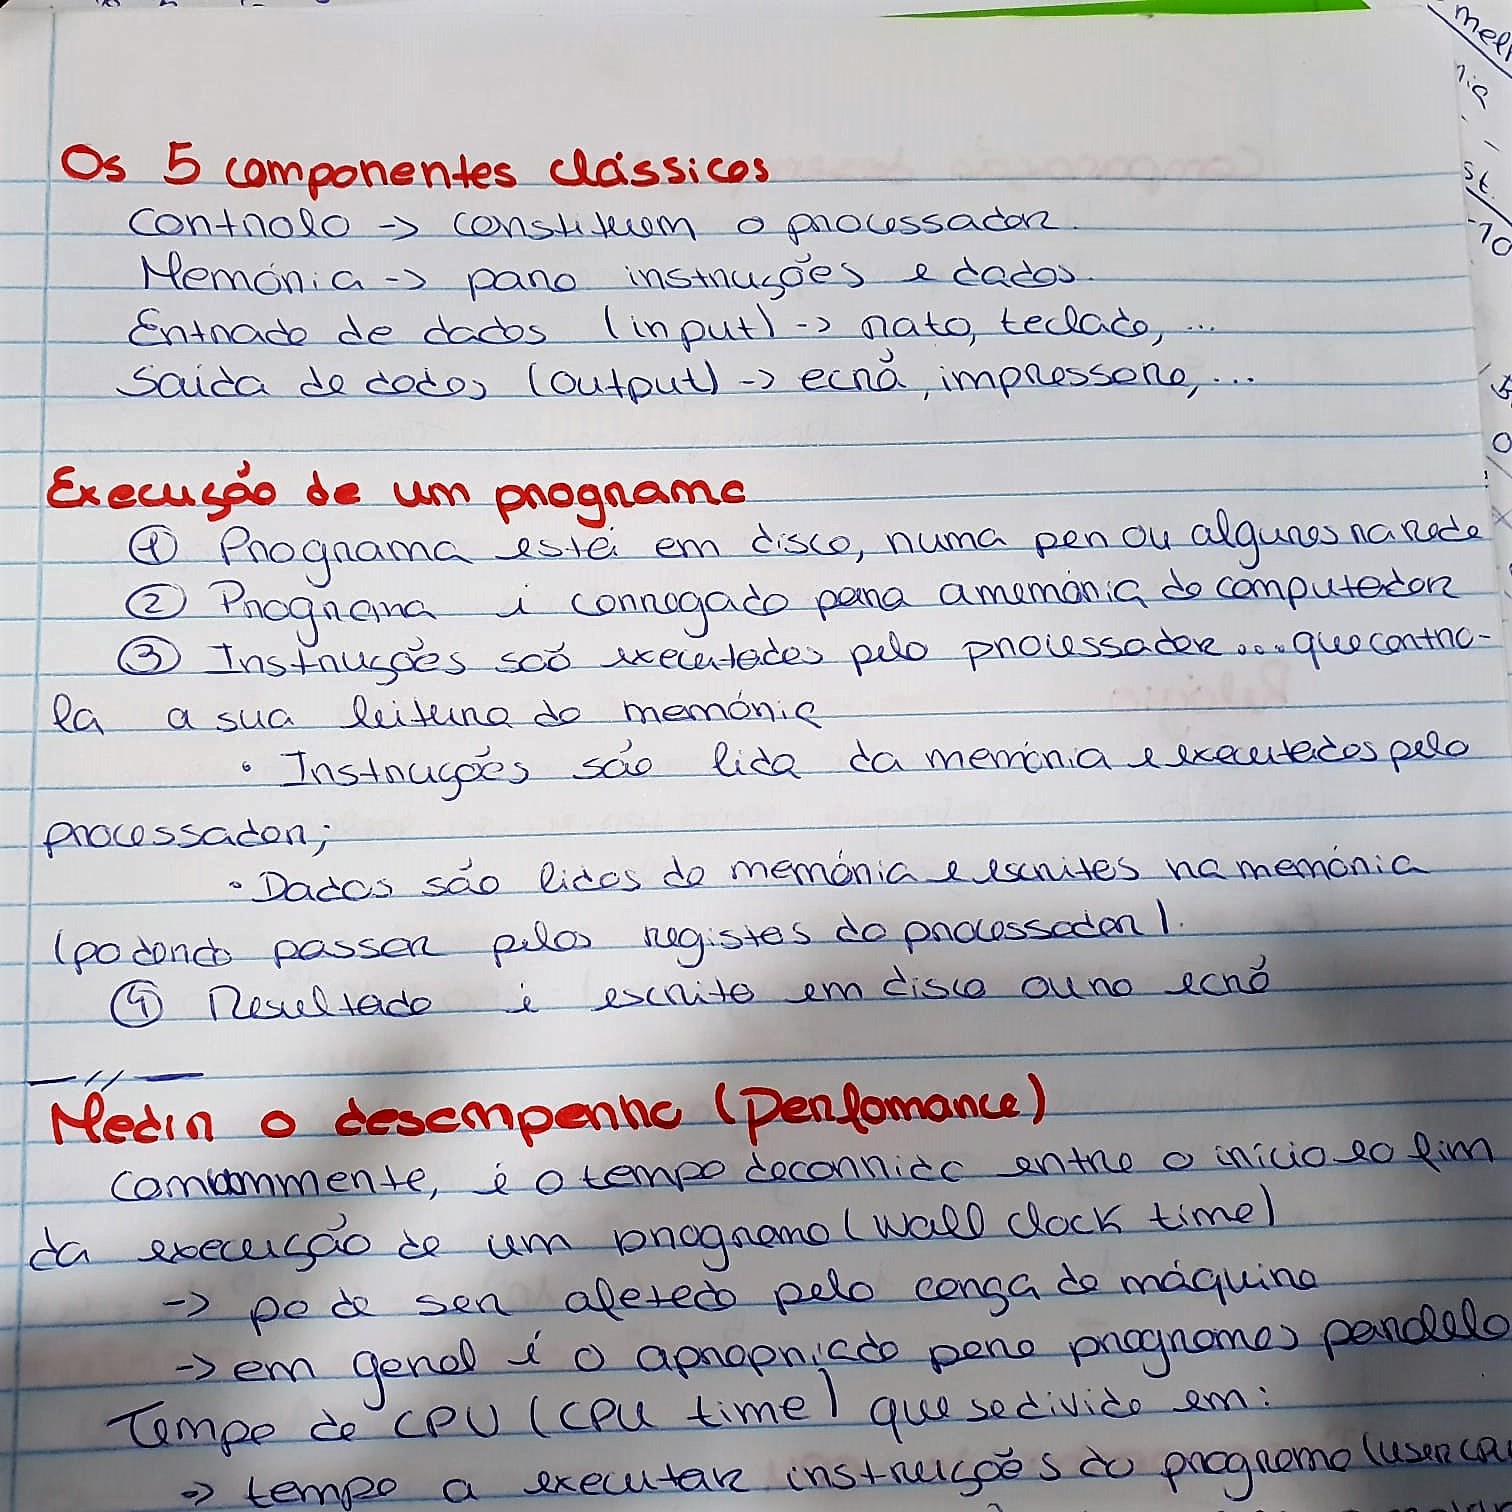 Os 5 componentes clássicos
Controlo -> constituem o processador.
Memória -> para instruções e dados.
Entrada de dados (input) -> rato, teclado, ...
Saída de dados (output) -> ecrã, impressora, ...
Execução de um programa
① Programa está em disco, numa pen ou algures na rede
② Programa é carregado para a memória do computador
③ Instruções são executadas pelo processador... que contro-
la a sua leitura da memória
• Instruções são lida da memória e executadas pelo
processador;
• Dados são lidos da memória e escritos na memória
(podendo passar pelos registos do processador).
④ Resultado é escrito em disco ou no ecrã
—//—
Medir o desempenho (Perfomance)
Comummente, é o tempo decorrido entre o início e o fim
da execução de um programa (wall clock time)
-> pode ser afetado pela carga da máquina
-> em geral é o apropriado para programas paralelo
Tempo de CPU (CPU time) que se divide em:
-> tempo a executar instruções do programa (user CPU